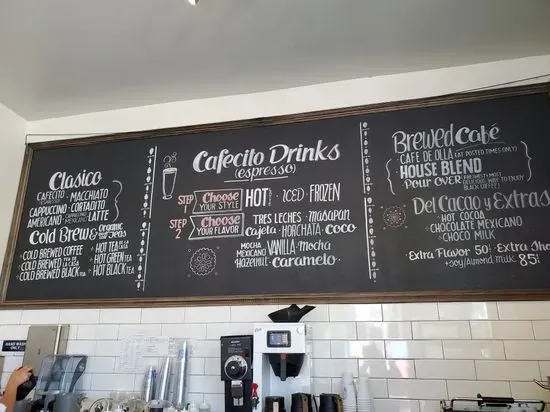 Clasico
CAFECITO · MACCHIATO
ESPRESSO
CAPPUCCINO · CORTADITO
AMERICANO · CAPPUCCINO MEXICANO · LATTE
Cold Brew & Organic Teas
COLD BREWED COFFEE
COLD BREWED
COLD BREWED BLACK TEA
HOT TEA DE LA CASA
HOT GREEN TEA
HOT BLACK TEA
Cafecito Drinks
(espresso)
STEP 1 Choose YOUR STYLE
HOT · ICED · FROZEN
STEP 2 Choose YOUR FLAVOR
TRES LECHES · masapan
Cajeta · HORCHATA · COCO
MOCHA MEXICANO · VANILLA · Mocha
HAZELNUT · Caramelo
Brewed Café
CAFE DE OLLA (AT POSTED TIMES ONLY)
HOUSE BLEND
POUR OVER (FRESHEST & MOST DELICIOUS WAY TO ENJOY BLACK COFFEE)
Del Cacao y Extras
HOT COCOA
CHOCOLATE MEXICANO
CHOCO MILK
· Extra Flavor 50¢ · Extra Sho
· soy/Almond milk 85¢
HAND WASH ONLY